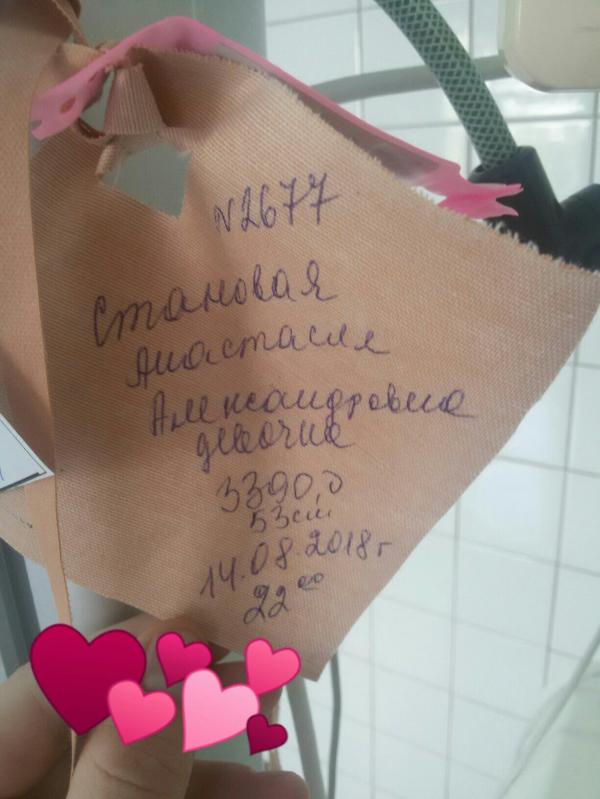 N2677
Становая
Анастасия
Александровна
девочка
3390,0
53см
14.08.2018г
22 00